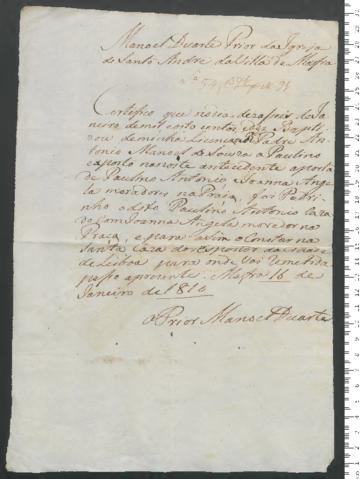 Manoel Duarte Prior da Igreja
de Santo Andre da Villa de Mafra
Certifico que no dia dezaseis de Ja
neiro de mil oito centos e des Bapti
zou de minha Licença o Padre An
tonio Manoel de Souza a Paulino
exposto na noite antecedente a porta
de Paulino Antonio, e Joanna Ange
la moradores na Praça, foi Padri
nho o dito Paulino Antonio caza
do com Joanna Angela morador na
Praça, e para assim constar na
Santa Caza da
de Lisboa para onde vai remetido
passo a prezente. Mafra 16 de
Janeiro de 1810
O Prior Manoel Duarte